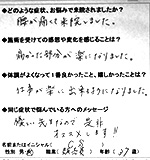 ●どのような症状、お悩みで来院されましたか?
腰が痛くて来院しました。
●施術を受けての感想や変化を感じることは?
痛かった部分が楽になりました。
●体調がよくなって1番良かったこと、嬉しかったことは?
仕事が楽に出来るようになりました。
●同じ症状で悩んでいる方へのメッセージ
腰い先生なので是非
オススメします!!
名前またはイニシャル(
性別 男・女 職業( 会社員 ) 年齢( 27 歳)